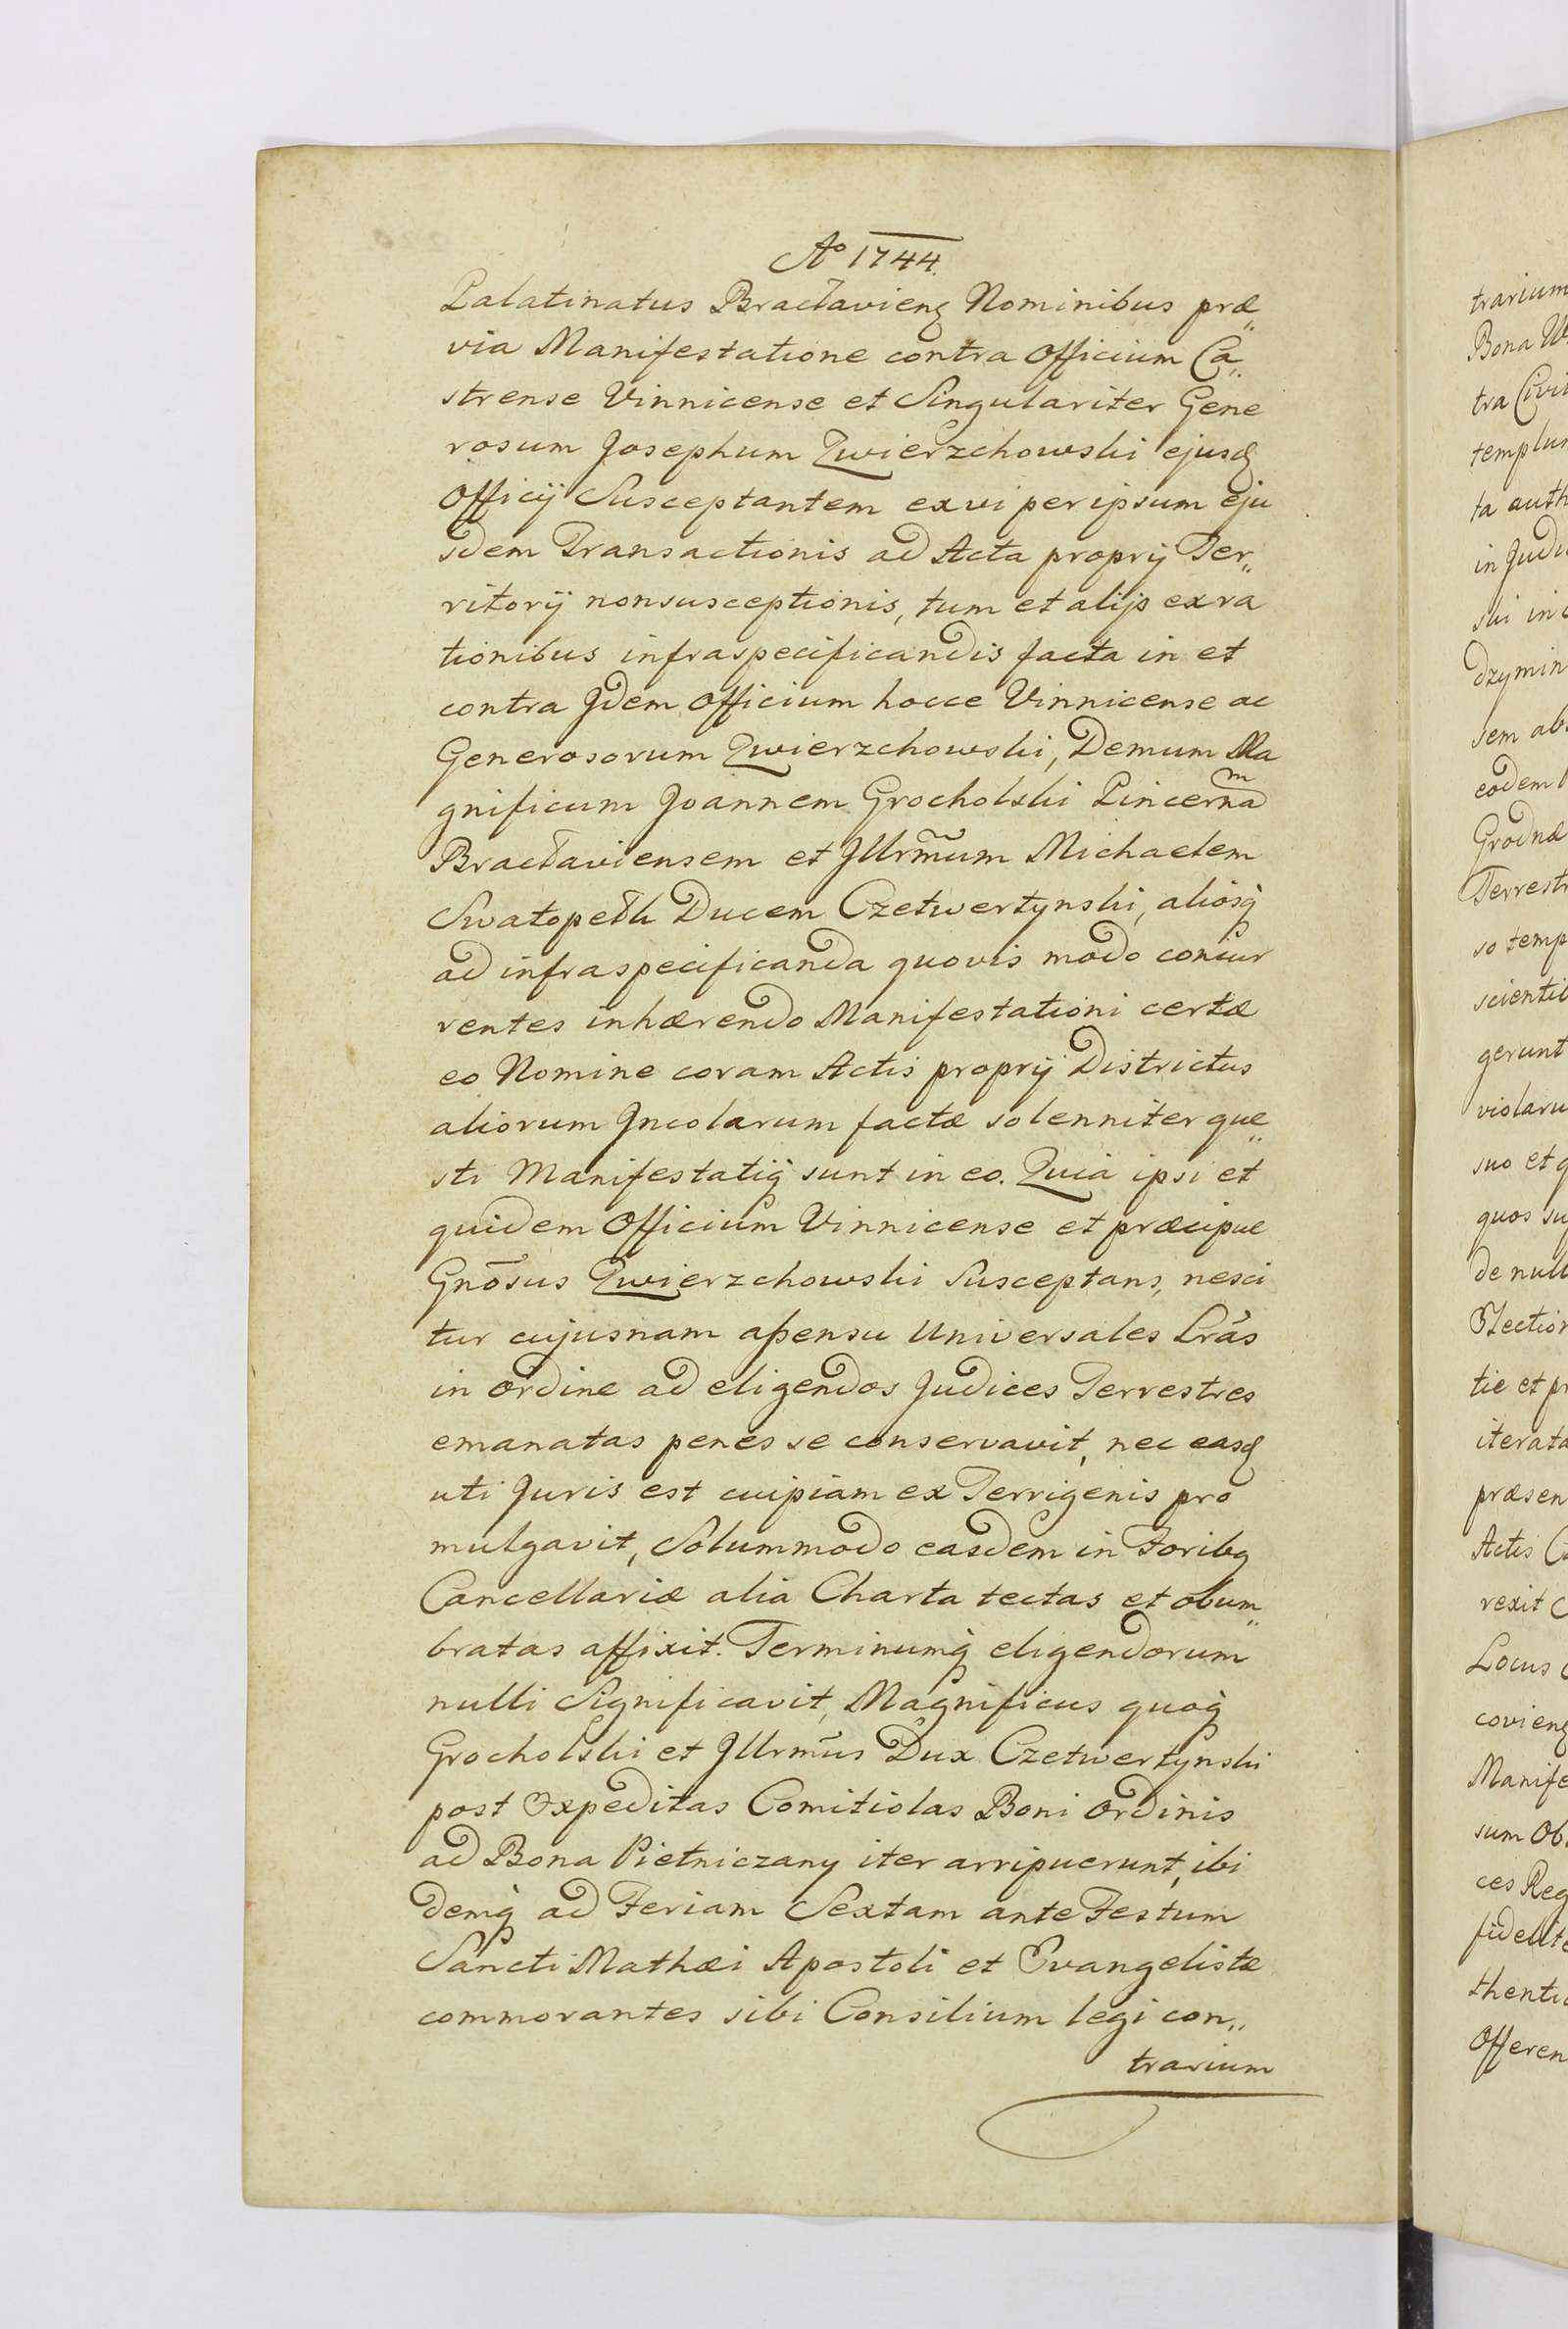 Aº 1744.
Palatinatus Bracłavienꝫ Nominibus præ„
via Manifestatione contra Officium Ca„
strense Vinnicense et Singulariter Gene
rosum Josephum Zwierzchowski ejusꝺ
Officij Susceptantem exvi per ipsum eju
sdem Transactionis ad Acta proprij Ter„
ritorij nonsusceptionis, tum et alijs ex ra
tionibus infraspecificandis facta in et
contra Jdem Officium hocce Vinnicense ac
Generosorum Zwierzchowski, Demum Ma
gnificum Joannem Grocholski Pincernaᵐ
Bracłaviensem et Jllrm̃um Michaelem
Swatopełk Ducem Czetwertynski, aliosq̃
ad infraspecificanda quovis modo concur
rentes inhærendo Manifestationi certæ
eo Nomine coram Actis proprij Districtus
aliorum Jncolarum factæ solenniter que„
sti Manifestatiq̃ sunt in eo. Quia ipsi et
quidem Officium Vinnicense et præcipue
Gnõsus Zwierzchowski Susceptans, nesci
tur cujusnam aßensu Universales Lrãs
in ordine ad eligendos Judices Terrestres
emanatas penes se conservavit, nec easꝺ
uti Juris est cuipiam ex Terrigenis pro
mulgavit, Solummodo easdem in Foribꝫ
Cancellariæ alia Charta tectas et obum„
bratas affixit. Terminumq̃ eligendorum
nulli Significavit, Magnificus quoq̃
Grocholski et Jllrm̃us Dux Czetwertynski
post Expeditas Comitiolas Boni Ordinis
ad Bona Pietniczany iter arripuerunt, ibi
demq̃ ad Feriam Sextam ante Festum
Sancti Mathæi Apostoli et Evangelistæ
commorantes sibi Consilium legi con„
trarium
trarium
Bona
tra Civi
templu
ta auth
in Judi
ski in
dzymin
sem ab
eodem
Grodnæ
Terrest
so temp
scienti
gerunt
violaru
suo et q
quos su
de null
Election
tie et pr
iterata
præsen
Actis C
rexit C
Locus
covienꝫ
Manife
sum Ob
ces Reg
fidelite
thentic
Offeren